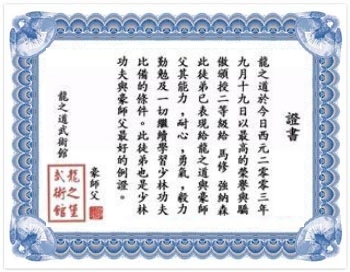 證書
龍之道於今日西元二零零三年
九月十九日以最高的榮譽與驕
傲頒授二等級給 馬修 強納森
此徒弟已表現給龍之道與豪師
父其能力，耐心，勇氣，毅力
勤勉及一切繼續學習少林功夫
比備的條件。此徒弟也是少林
功夫與豪師父最好的例證。
豪師父
龍之道武術館
龍之堡
武術館